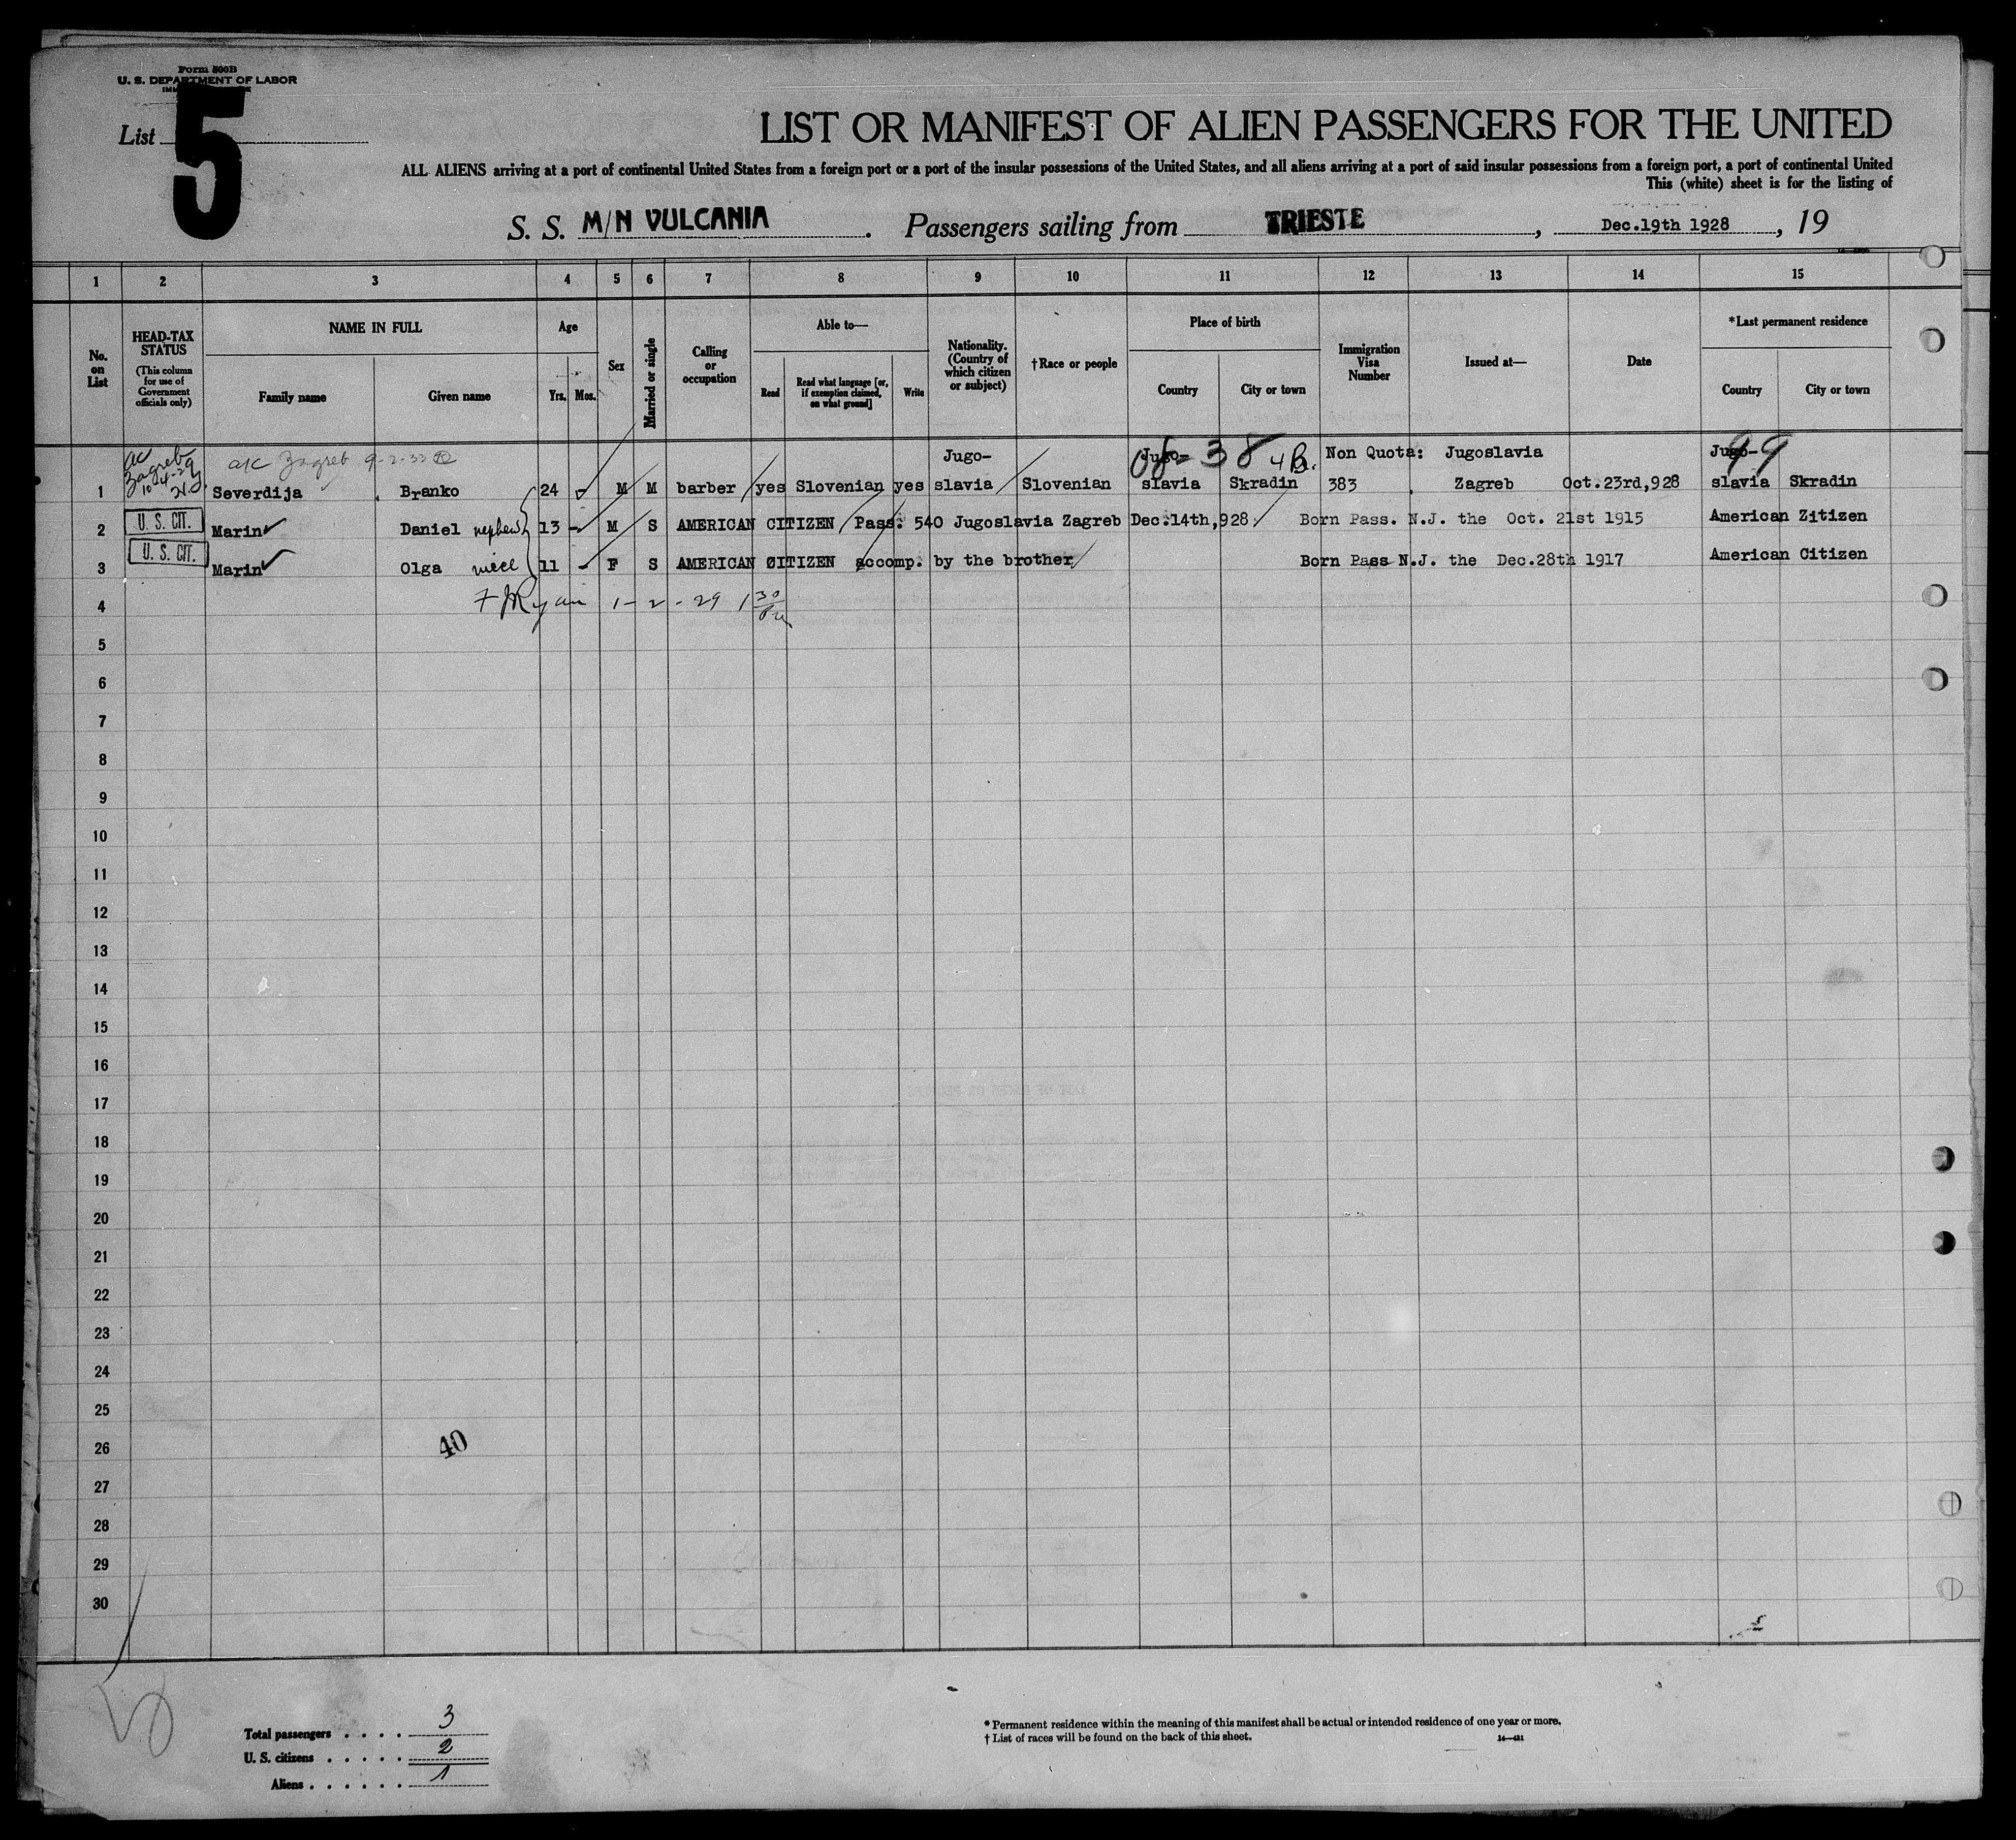 Form 500B
U. S. DEPARTMENT OF LABOR
List 5
LIST OR MANIFEST OF ALIEN PASSENGERS FOR THE UNITED
ALL ALIENS arriving at a port of continental United States from a foreign port or a port of the insular possessions of the United States, and all aliens arriving at a port of said insular possessions from a foreign port, a port of continental United
This (white) sheet is for the listing of
S. S. M/N VULCANIA. Passengers sailing from TRIESTE, Dec.19th 1928, 19
1 2 3 4 5 6 7 8 9 10 11 12 13 14 15
No. on List
HEAD-TAX STATUS (This column for use of Government officials only)
NAME IN FULL
Family name
Given name
Age
Yrs. Mos.
Sex
Married or single
Calling or occupation
Able to—
Read
Read what language [or, if exemption claimed, on what ground]
Write
Nationality. (Country of which citizen or subject)
†Race or people
Place of birth
Country
City or town
Immigration Visa Number
Issued at—
Date
*Last permanent residence
Country
City or town
a/c Zagreb 9-2-33 Jugo- 38 4B. Non Quota: Jugoslavia Jugo- 99
Zagreb
1 Severdija Branko 24 - M M barber yes Slovenian yes slavia Slovenian slavia Skradin 383 Zagreb Oct.23rd,928 slavia Skradin
2 U. S. CIT. Marin Daniel nephew 13 - M S AMERICAN CITIZEN Pass. 540 Jugoslavia Zagreb Dec.14th,928. Born Pass. N.J. the Oct. 21st 1915 American Zitizen
3 U. S. CIT. Marin Olga niece 11 - F S AMERICAN CITIZEN accomp. by the brother Born Pass N.J. the Dec.28th 1917 American Citizen
4 F J Ryan 1-2-29 1 30 Pm
5
6
7
8
9
10
11
12
13
14
15
16
17
18
19
20
21
22
23
24
25
26 40
27
28
29
30
Total passengers . . . . 3
U. S. citizens . . . . . 2
Aliens . . . . . . 1
* Permanent residence within the meaning of this manifest shall be actual or intended residence of one year or more.
† List of races will be found on the back of this sheet.